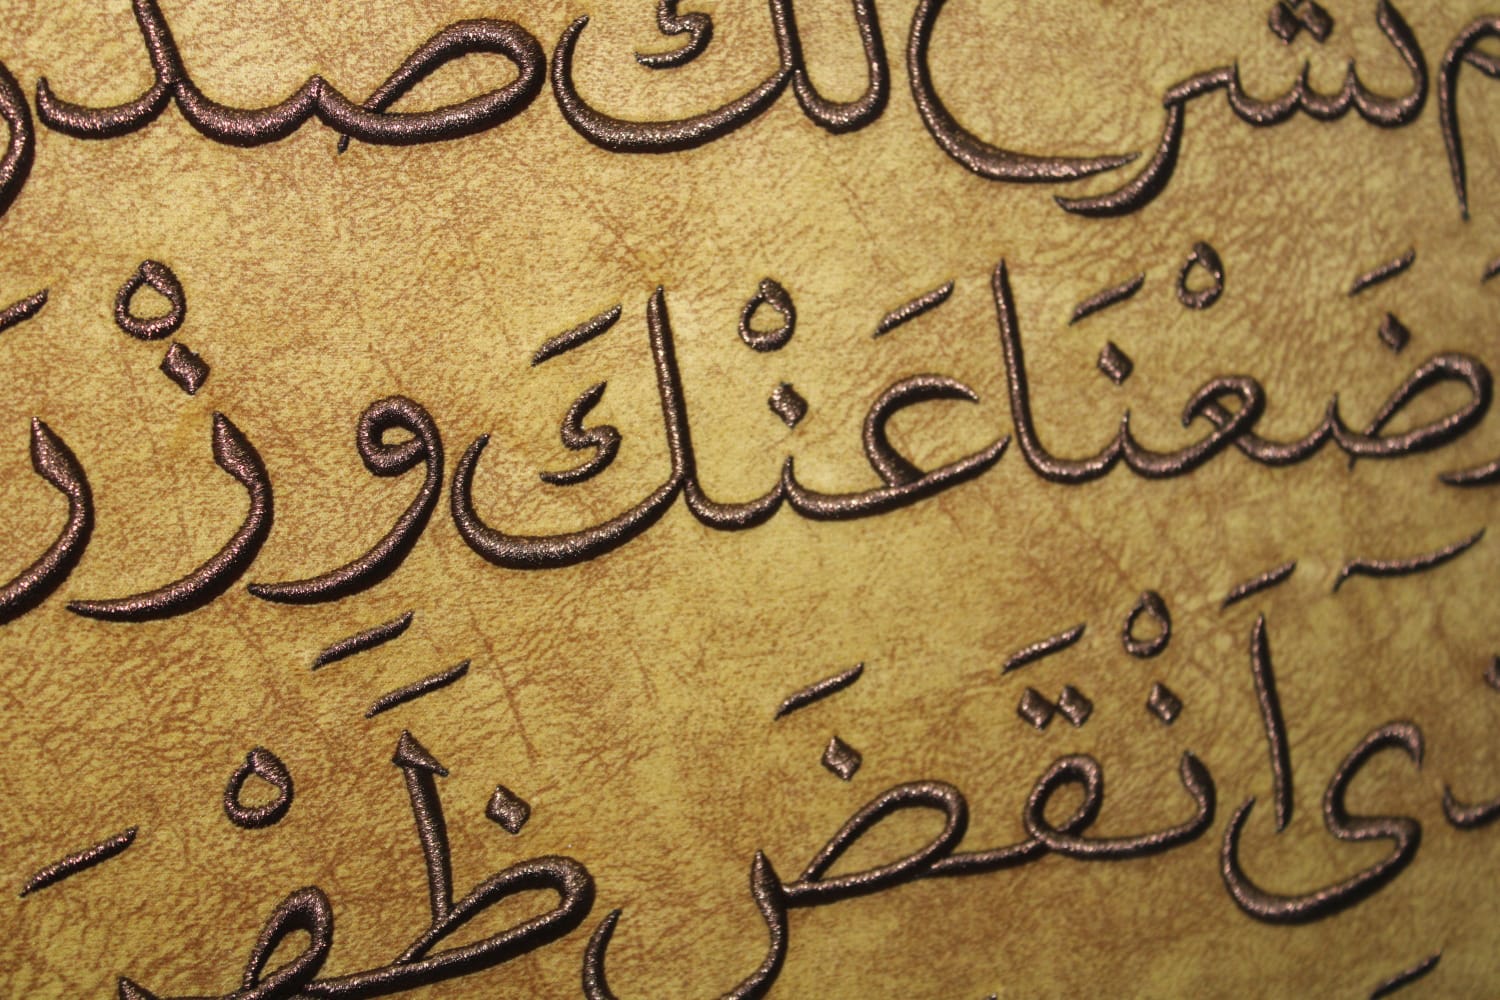 م نشرح لك صدر
وَضَعْنَا عَنْكَ وِزْرَ
ذى اَنْقَضَ ظَهْرَ